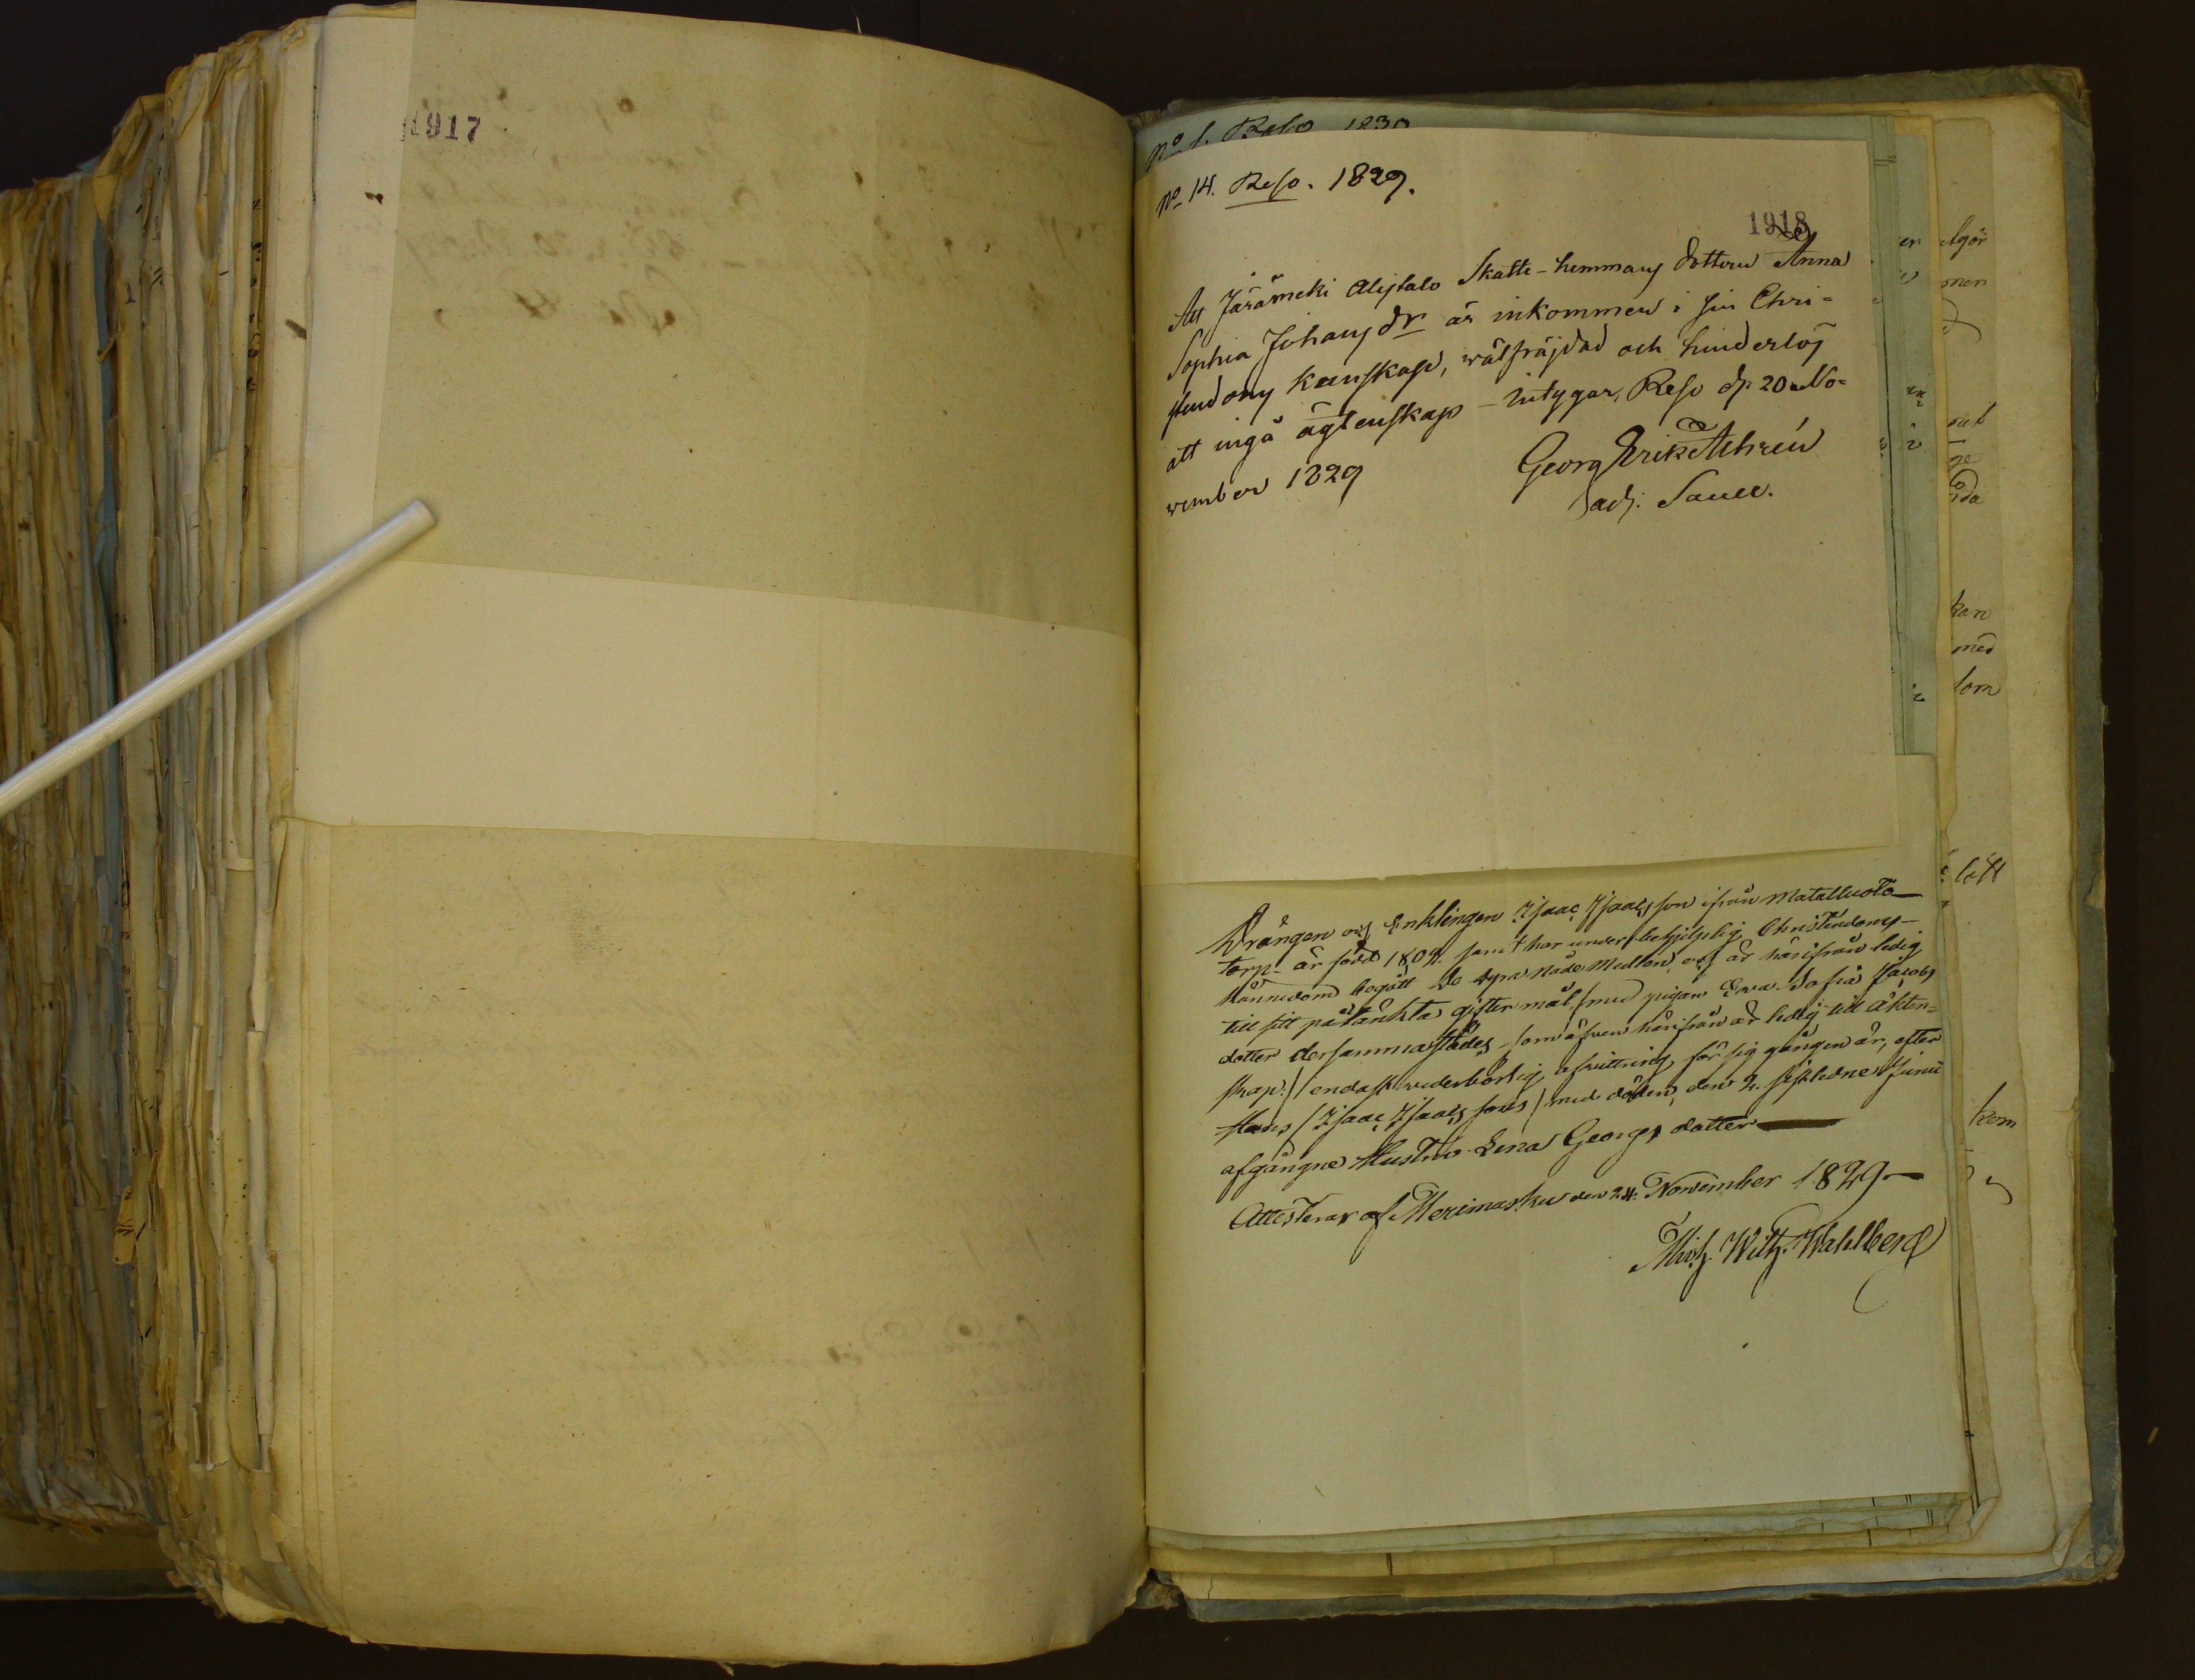 1917
No 1. Reso 1830
No 14. Reso. 1829.
1918
Att Järämeki Alistalo Skatte-hemmans dottren Anna
Sophia Johansdr är inkommen i sin Chri-
stendoms kunskap, wälfräjdad och hinderlös
att ingå ägtenskap - intygar, Reso d: 20 No-
vember 1829
Georg Erik Achrén
adj. Sacell.
Drängen och Enklingen Isaac Isaacsson ifrån Matalluoto
torp - är född 1802. samt har under behjelplig Christendoms-
kännedom begått de dyra Nåde Medlen, och är härifrån ledig
till sitt påtänkta giftermål / med pigan Ewa Safia Jacobs
dotter dersammastädes - som äfven härifrån är ledig till äkten-
skap./ endast wederbörlig afwittring för sig gången är, efter
Hans / Isaac Isaacssons / med döden, den 2. sistledne Junii
afgångne Hustru Lena Georgsdotter
Attesterar af Merimasku den 24. November 1829
Mich. Wilh. Wahlberg